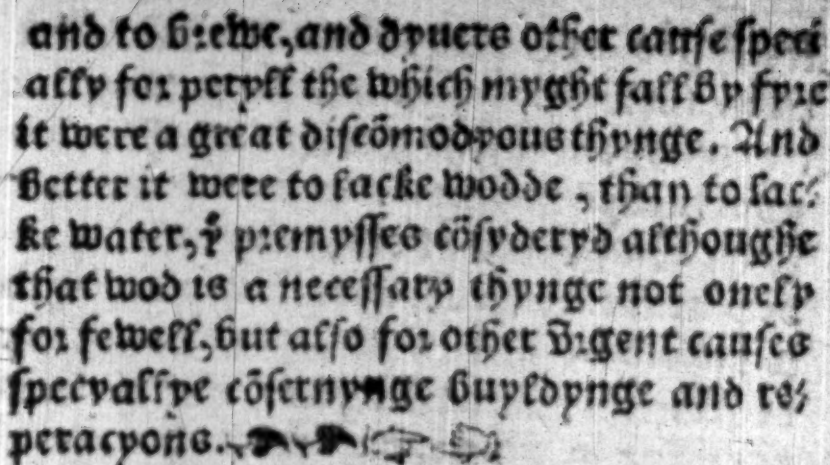 and to brewe, and dyuers other cause speci
ally for peryll the which myght fall by fyre
it were a great discõmodyous thynge. And
better it were to lacke wodde, than to lac⸗
ke water, yͤ premysses cõsyderyd althoughe
that wod is a necessary thynge not onely
for fewell, but also for other vrgent causes
specyallye cõsernynge buyldynge and re⸗
peracyons.